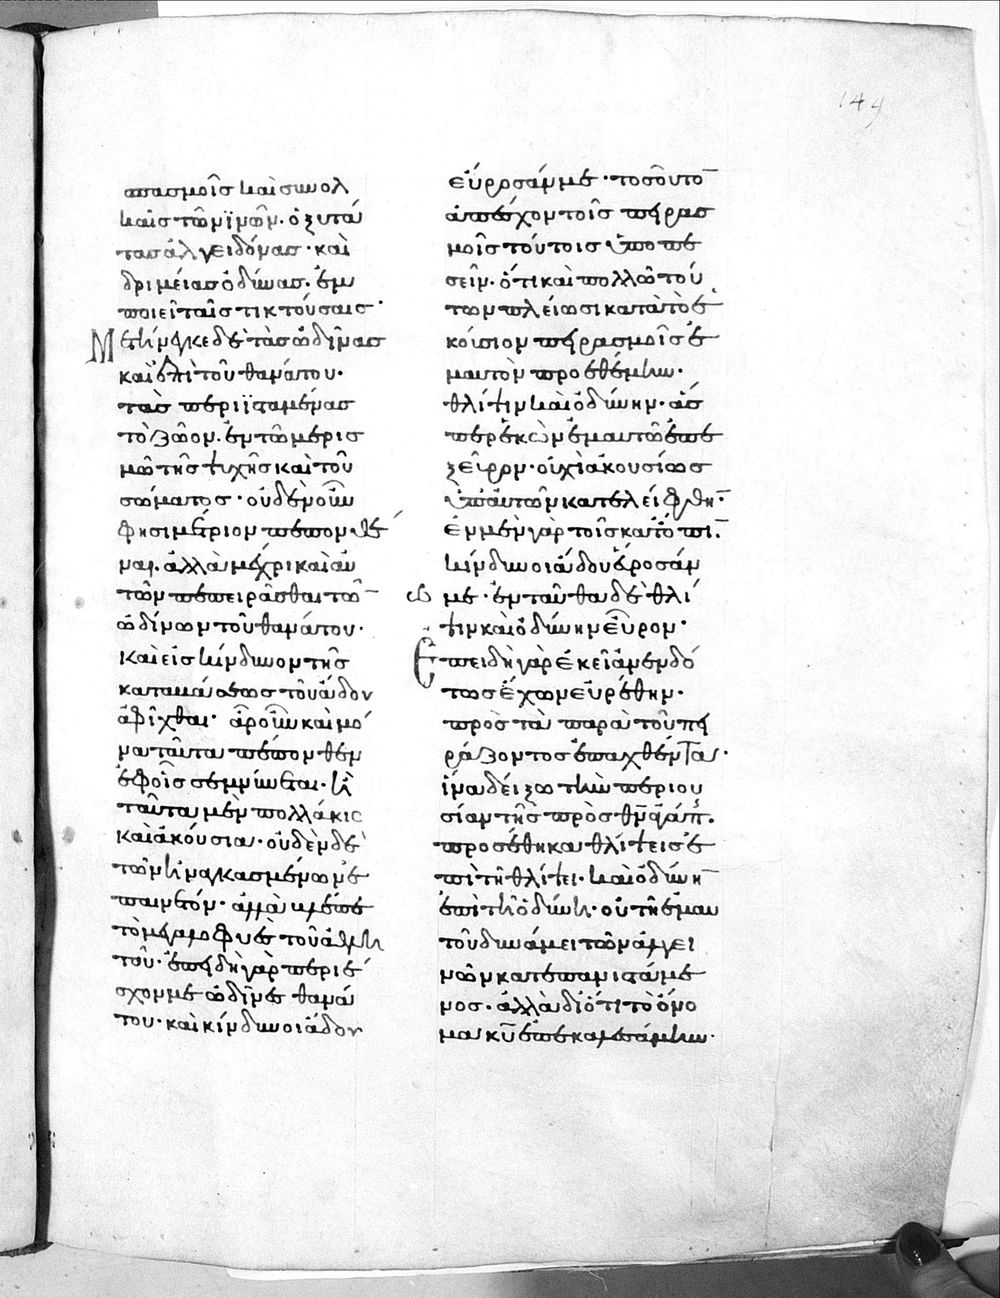 149
σπασμοῖς καὶ συνολ
καῖς τῶν ἰνῶν· ὀξυτά
τας ἀλγειδόνας· καὶ
δριμείας ὀδύνας· ἐμ
ποιεῖ ταῖς τικτούσαις·
Μετήνεγκε δὲ τὰς ὠδῖνας
καὶ ἐπὶ τοῦ θανάτου·
τὰς περιϊσταμένας
τὸ ζῶον· ἐν τῶ μερισ
μῶ τῆς ψυχῆς καὶ τοῦ
σώματος· οὐδὲν οὖν
φησι μέτριον πέπονθέ
ναι· ἀλλὰ μέχρι καὶ αὐ
τῶν πεπειρᾶσθαι τῶ̅
ὠδίνων τοῦ θανάτου·
καὶ εἰς κίνδυνον τῆς
καταβάσεως τοῦ ἅδου
ἀφῖχθαι· ἆρ' οὖν καὶ μό
να ταῦτα πέπονθεν
ἐφ' οἷς σεμνύνεται· ἢ
ταῦτα μὲν πολλάκις
καὶ ἀκούσια· οὐδὲν δὲ
τῶν ἠναγκασμένων ἐ
παινετόν· ἀλλὰ βλέπε
τὸ μεγαλοφυὲς τοῦ ἀθλη
τοῦ· ἐπειδὴ γὰρ περιέ
σχον με ὠδῖνες θανά
του· καὶ κίνδυνοι ἅδου
εὕροσάν με· τοσοῦτο̅
ἀπέσχον τοῖς πειρασ
μοῖς τούτοις ὑποπε
σεῖν· ὅτι καὶ πολλῶ τού
των πλείωσι κατὰ τὸ ἑ
κούσιον πειρασμοῖς ἐ
μαυτὸν προεθέμην·
θλίψιν καὶ ὀδύνην· ἅσ
περ ἑκὼν ἐμαυτῶ ἐπε
ξεῦρον· οὐχὶ ἀκουσίως
ὑπ' αὐτῶν κατελείφθη̅·
ἐν μὲν γὰρ τοῖς κατόπι̅·
κίνδυνοι ἅδου εὕροσάν
με· ἐνταῦθα δὲ θλί
ψιν καὶ ὀδύνην εὗρον·
Ἐπειδὴ γὰρ ἐκεῖ ἀνενδό
τως ἔχων εὑρέθην·
πρὸς τὰ παρὰ τοῦ πει
ράζοντος ἐπαχθέντα·
ἵνα δείξω τὴν περιου
σίαν τῆς πρὸς θ̅ν̅ ἀγάπ·
προσέθηκα θλίψεις ἐ
πὶ τῆ θλίψει· καὶ ὀδύνη̅
ἐπὶ τῆ ὀδύνη· οὐ τῆ ἐμαυ
τοῦ δυνάμει τῶν ἀλγει
νῶν κατεπανιστάμε
νος· ἀλλὰ διότι τὸ ὄνο
μα κ̅υ̅ ἐπεκαλεσάμην·